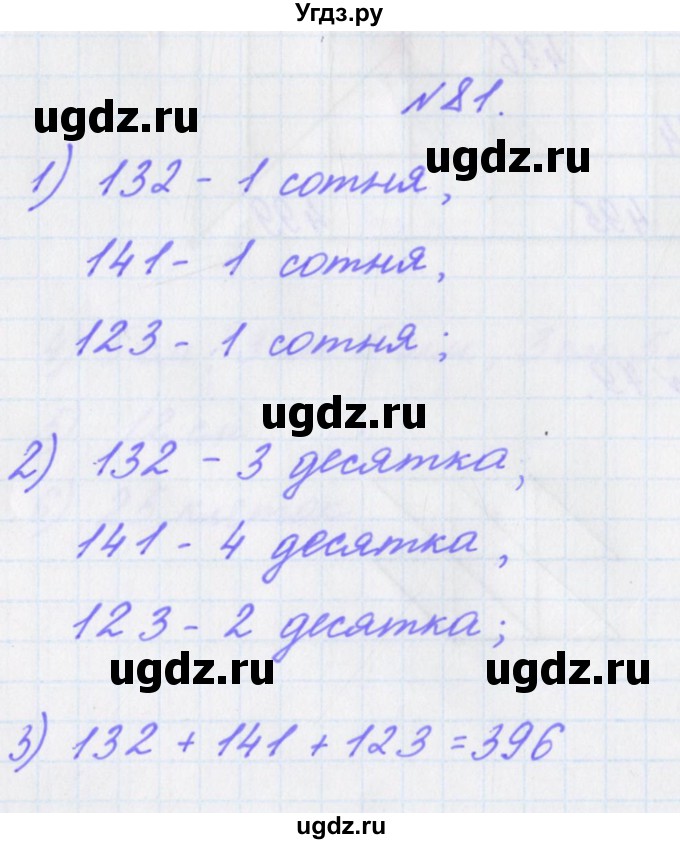 Угдз.ру
№81.
ugdz.ru
ugdz.ru
1) 132 - 1 сотня,
141 - 1 сотня,
123 - 1 сотня;
ugdz.ru
2) 132 - 3 десятка,
141 - 4 десятка,
123 - 2 десятка;
ugdz.ru
ugdz.ru
3) 132 + 141 + 123 = 396
ugdz.ru